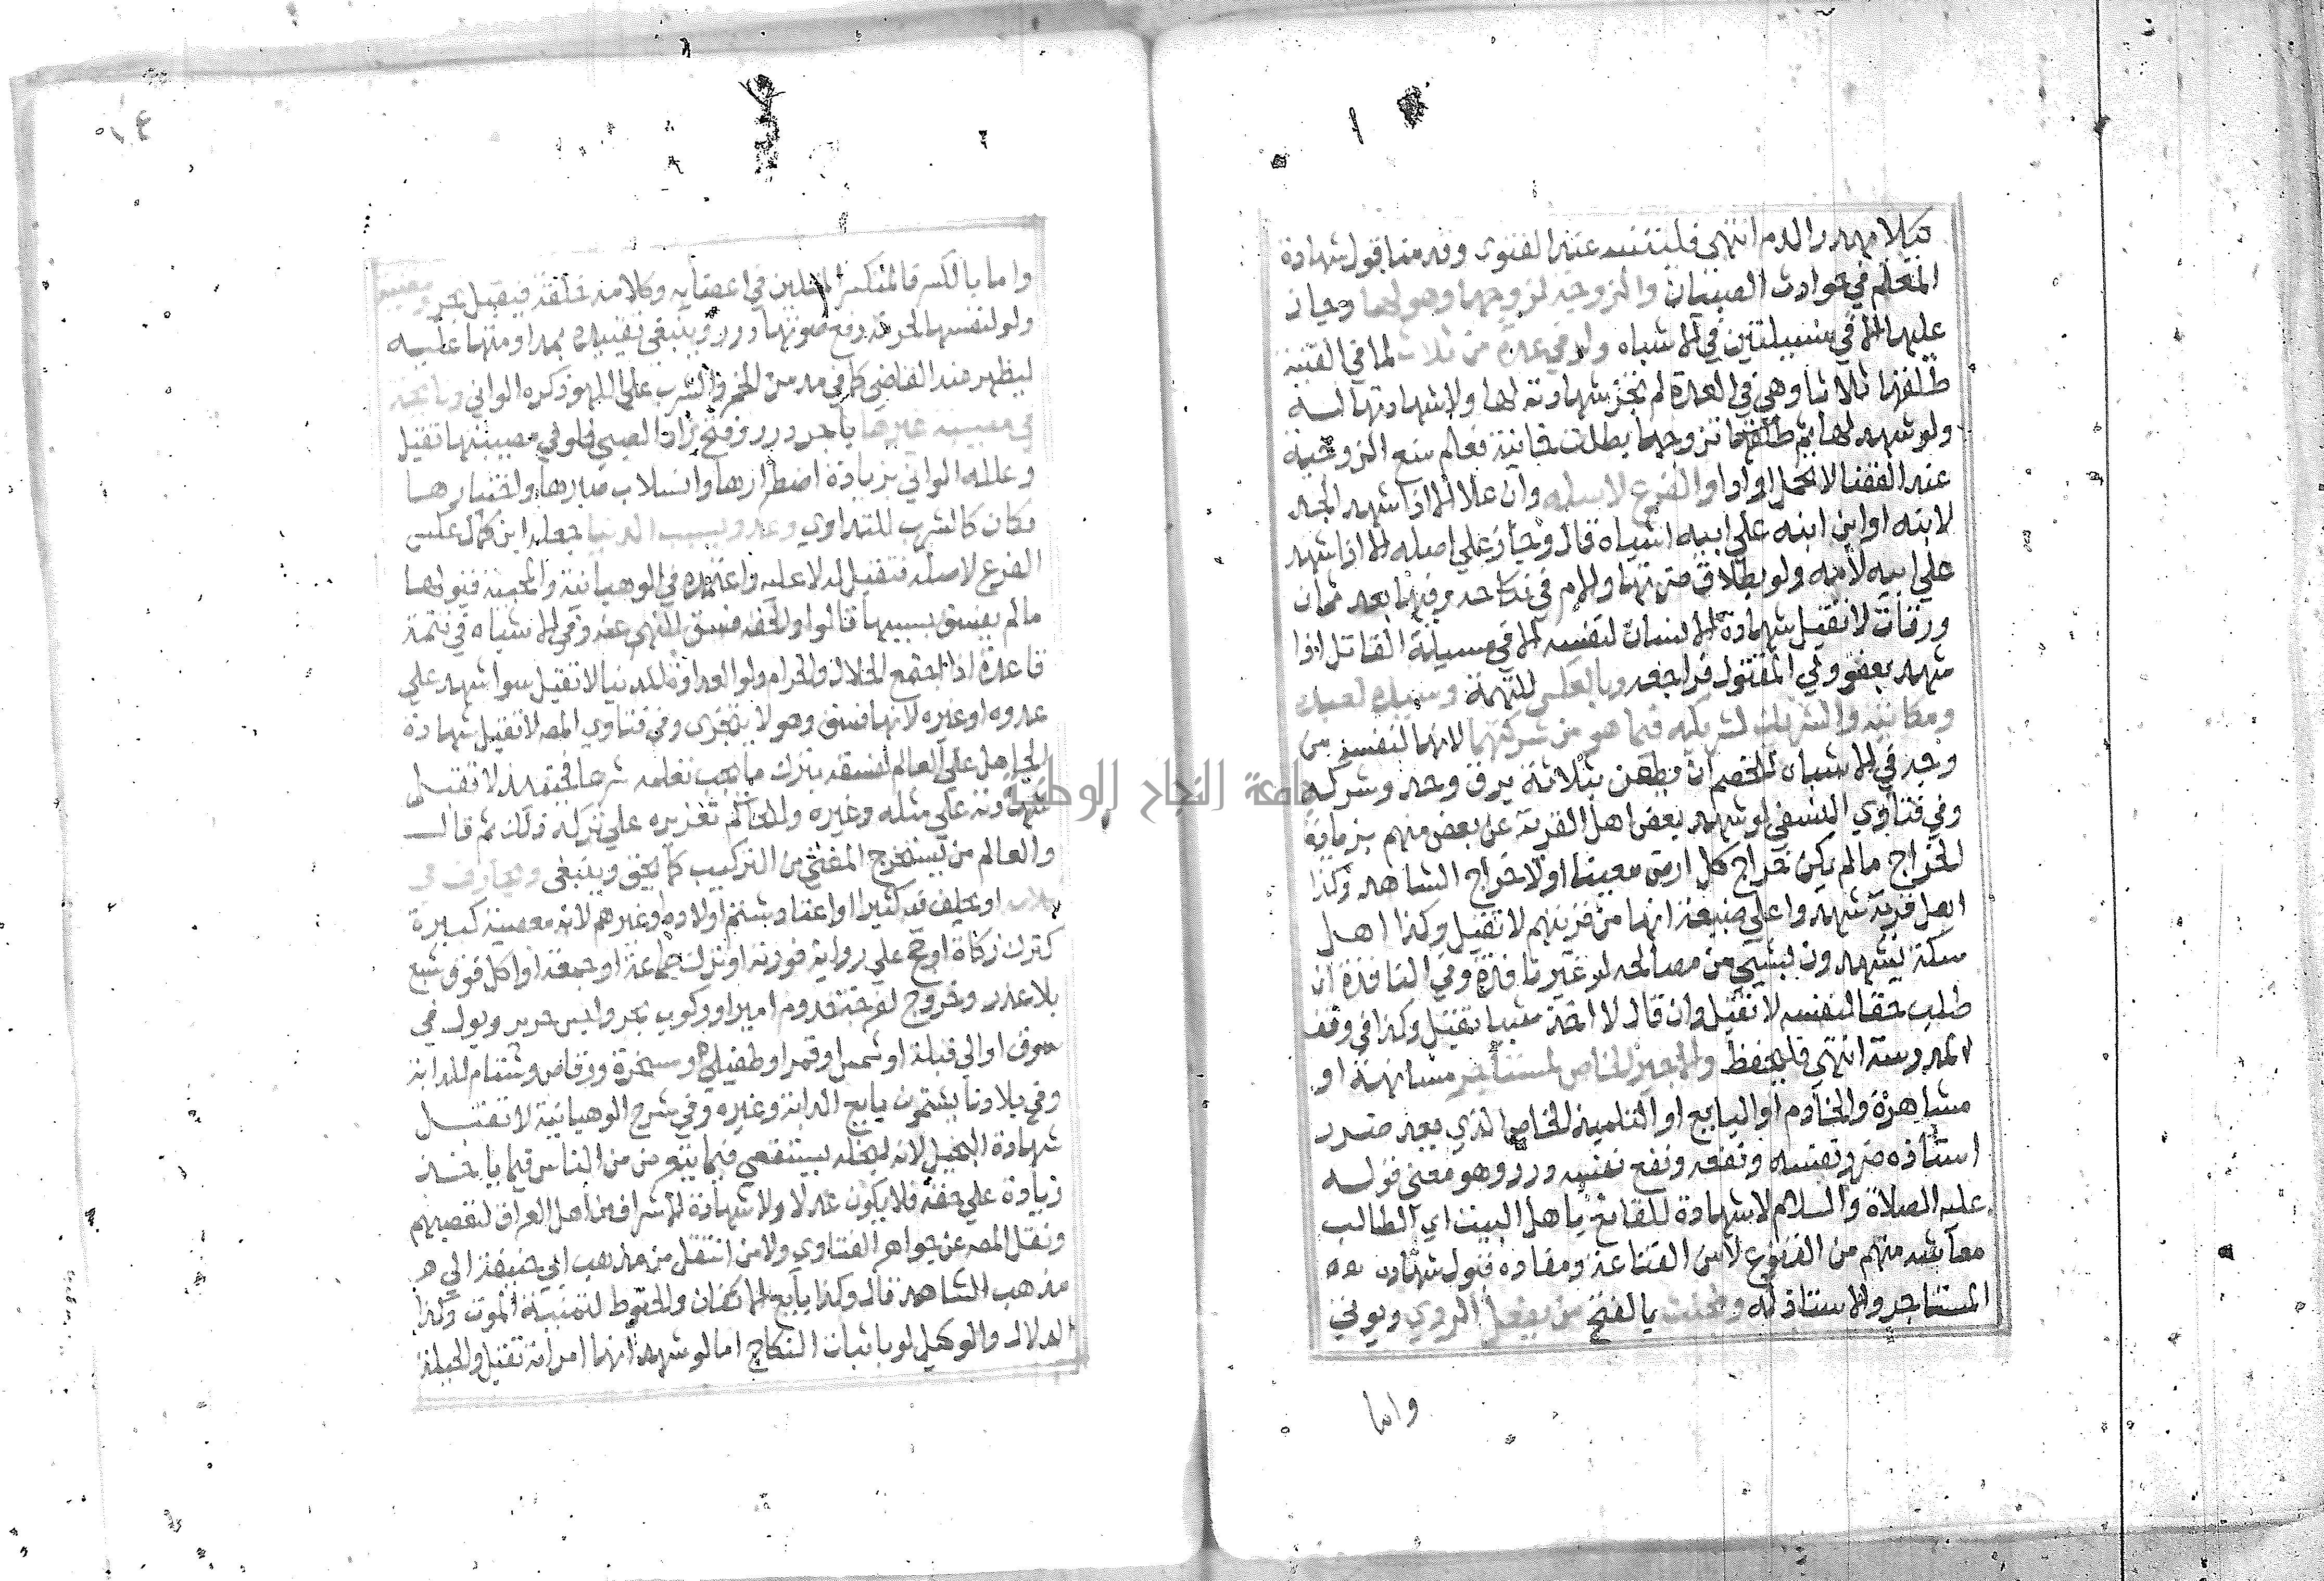 كيلا يهدر الدم انتهى فليتنبه عند الفتوى وقدمنا قبول شهادة
المعلم في حوادث الصبيان والزوجة لزوجها وهو لها وجاز
عليها الا في مسيلتين في الاشباه ولو في عدة من ثلاث لما في القنية
طلقها ثلاثا وهي في العدة لم تجز شهادته لها ولا شهادتها له
ولو شهد لها ثم تزوجها بطلت خانية فعلم منع الزوجية
عند القضا لا تحمل او ادا والفرع لاصله وان علا الا اذا شهد الجد
لابنه او ابن ابنه على ابيه اشباه قال وجاز على اصله الا اذا شهد
على ابيه لامه ولو بطلاق ضرتها والام في نكاحه وفيها بعد ثمان
ورقات لا تقبل شهادة الانسان لنفسه الا في مسيلة القاتل اذا
شهد بعفو ولي المقتول فراجعه وبالعكس للتهمة وسيد لعبده
ومكاتبه والشريك لشريكه فيما هو من شركتهما لانها لنفسه من
وجه في الاشباه للخصم ان يطعن بثلاثة برق وحد وشركة
وفي فتاوي النسفي لو شهد بعض اهل القرية على بعض منهم بزيادة
الخراج مالم يكن خراج كل ارض معينا او لا خراج الشاهد وكذا
اهل قرية شهدوا على ضيعة انها من قريتهم لا تقبل وكذا اهل
سكة يشهدون بشي من مصالحه لو غير نافذة وفي النافذة ان
طلب حقا لنفسه لا تقبل وان قال لا اخذ شيا تقبل وكذا في وقف
المدرسة انتهى فليحفظ والاجير الخاص لمستاجره مسانهة او
مشاهرة والخادم او التابع او التلميذ الخاص الذي يعد ضرر
استاذه ضرر نفسه ونفعه نفع نفسه درر وهو معنى قوله
عليه الصلاة والسلام لا شهادة للقانع باهل البيت اي الطالب
معاشه منهم من القنوع لا من القناعة ومفاده قبول شهادة
المستاجر والاستاذ له ومخنث بالفتح من يفعل الردي ويوتى
واما
واما بالكسر فالمتكسر المتلين في اعضايه وكلامه خلقة فيقبل بحر ومغنية
ولو لنفسها لحرمة رفع صوتها درر وينبغي تقييده بمداومتها عليه
ليظهر عند القاضي كما في مدمن الخمر والشرب على اللهو ذكره الواني ونايحة
في مصيبة غيرها باجر درر وفتح زاد العيني فلو في مصيبتها تقبل
وعلله الواني بزيادة اضطرارها وانسلاب صبرها واختيارها
فكان كالشرب للتداوي وعدو بسبب الدنيا جعله ابن كمال عكس
الفرع لاصله فتقبل له لا عليه واعتمده في الوهبانية والمحبية قبولها
مالم يفسق بسببها قالوا والحقد فسق للنهي عنه وفي الاشباه في تتمة
قاعدة اذا اجتمع الحلال والحرام ولو العداوة للدنيا لا تقبل سوا شهد على
عدوه او غيره لانها فسق وهو لا يتجزى وفي فتاوي المص لا تقبل شهادة
الجاهل على العالم لفسقه بترك ما يجب تعلمه شرعا فحينئذ لا تقبل
شهادته على مثله وغيره وللحاكم تعزيره على تركه ذلك ثم قال
والعالم من يستخرج المعنى من التركيب كما يحق وينبغي ومجازف في
كلامه او يحلف فيه كثيرا او اعتاد شتم اولاده او غيرهم لانه معصية كبيرة
كترك زكاة او حج على رواية فوريته او ترك جماعة او جمعة او اكل فوق شبع
بلا عذر وخروج لفرجة قدوم امير او ركوب بحر ولبس حرير وبول في
سوق او الى قبلة او شمس او قمر او طفيلي او مسخرة ورقاص وشتام للدابة
وفي بلادنا يشتمون بايع الدابة وغيره وفي شرح الوهبانية لا تقبل
شهادة البخيل لانه لبخله يستقصي فيما يتقرض من الناس فيما ياخذ
زيادة على حقه فلا يكون عدلا ولا شهادة الاشراف من اهل العراق لتعصبهم
ونقل المص عن جواهر الفتاوي ولا من انتقل من مذهب ابي حنيفة الى
مذهب الشافعي قال وكذا بايع الاكفان والحنوط لتمنيه الموت وكذا
الدلال والوكيل لو باثبات النكاح اما لو شهد انها امراته تقبل والحيلة
جامعة النجاح الوطنية